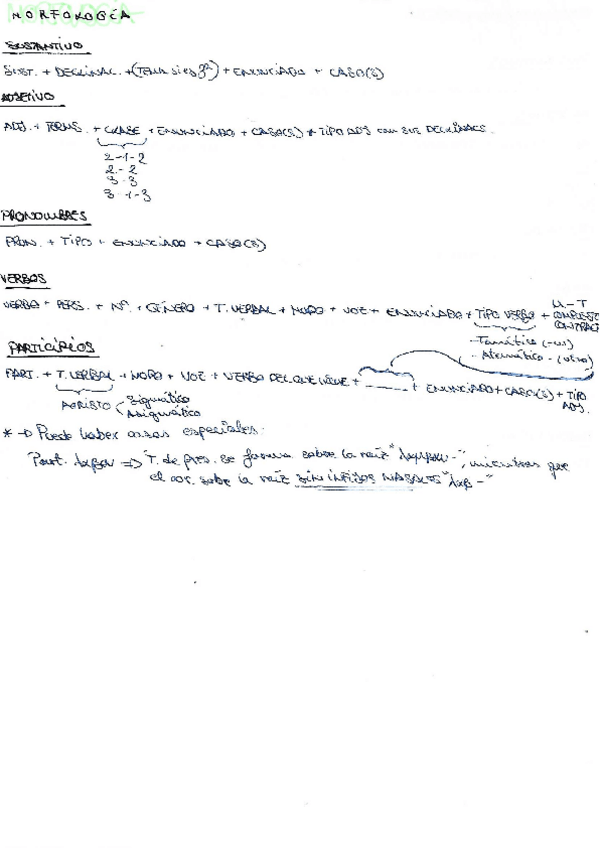 MORFOLOGÍA
SUSTANTIVO
SUST. + DECLINAC. + (TEMA si es 3ª) + ENUNCIADO + CASO(S)
ADJETIVO
ADJ. + TERMS. + CLASE + ENUNCIADO + CASO(S) + TIPO ADJ con sus DECLINACS.
2-1-2
2-2
3-3
3-1-3
PRONOMBRES
PRON. + TIPO + ENUNCIADO + CASO(S)
VERBOS
VERBO + PERS. + Nº. + GÉNERO + T. VERBAL + MODO + VOZ + ENUNCIADO + TIPO VERBO + COMPUESTO CONTRACTO
- Temático (-ω)
- Atemático -
PARTICIPIOS
PART. + T. VERBAL + MODO + VOZ + VERBO DEL QUE VIENE + ______ + ENUNCIADO + CASO(S) + TIPO ADJ.
AORISTO
Sigmático
Asigmático
* → Puede haber cosas especiales:
Part. λαβων => T. de pres. se forma sobre la raíz "λαμβαν-", mientras que
el aor. sobre la raíz SIN INFIJOS NASALES "λαβ-"